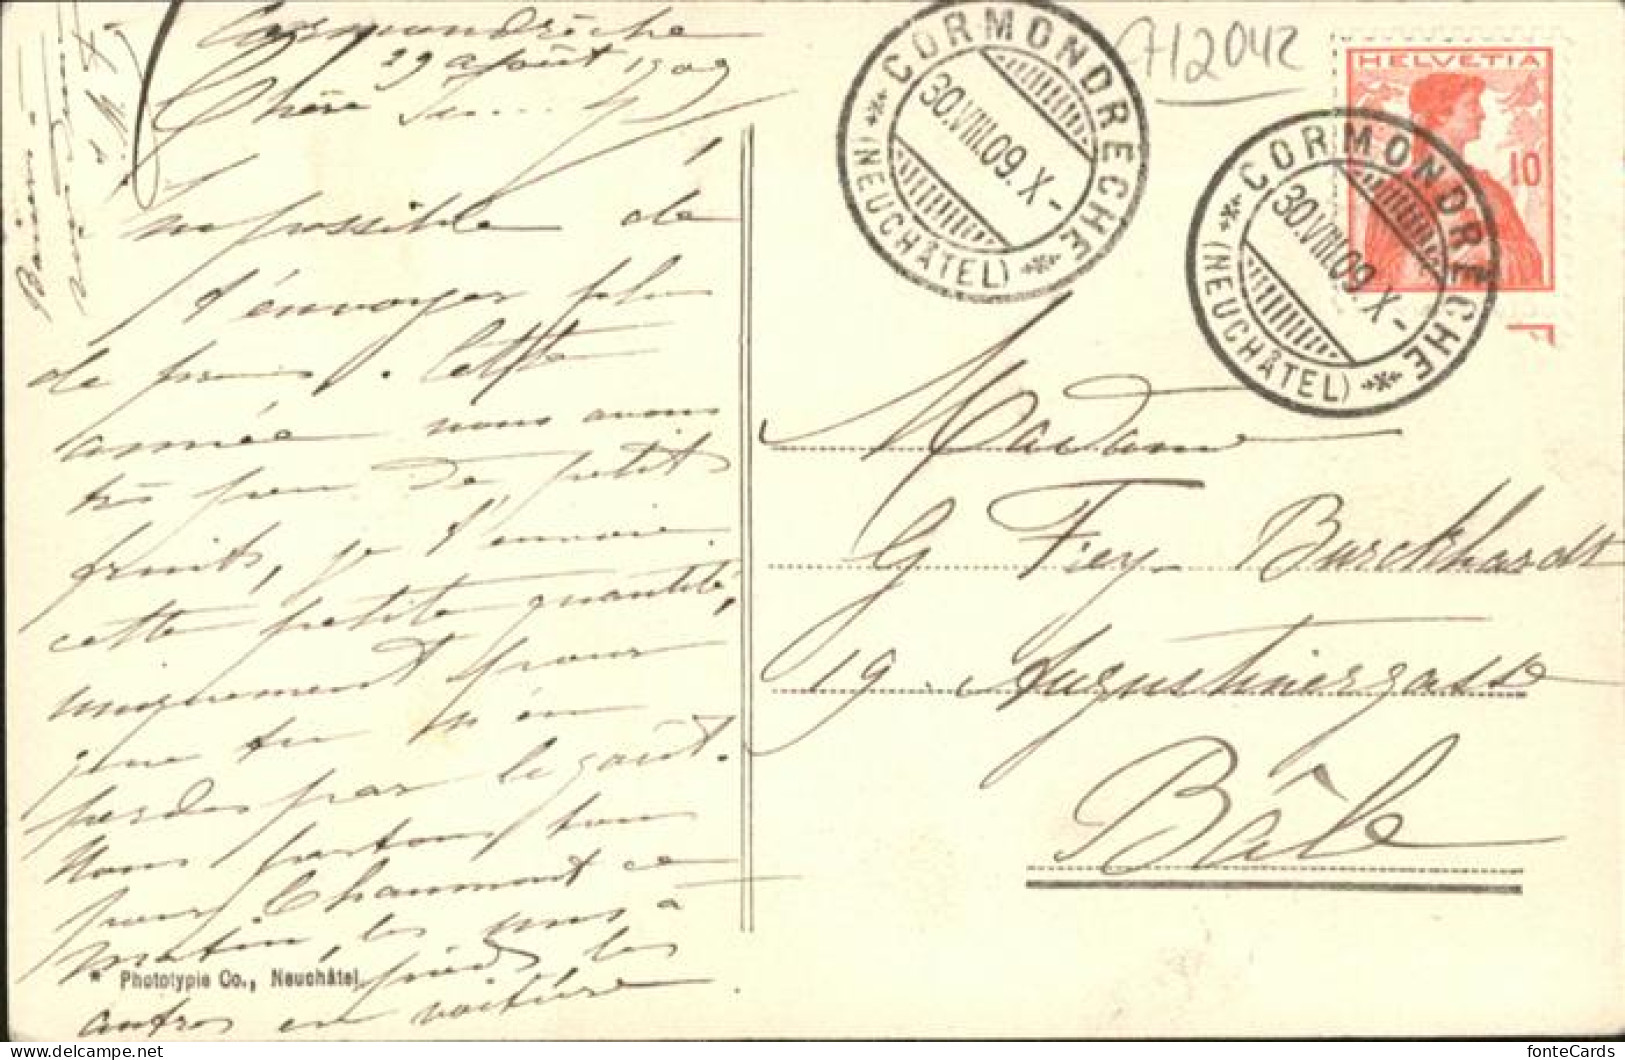 Cormondrèche
29 août 1909
Chère
Impossible de
t'envoyer plus
de prunis. Cette
année nous avons
très peu de petits
fruits, je t'envoie
cette petite quantité,
uniquement pour
que tu n'en
perdes pas le goût.
Nous partons tous
pour Chaumont ce
matin, les uns à
pied les
autres en voiture
Baisers
* Phototypie Co., Neuchâtel.
CORMONDRÈCHE
30.VIII.09.X-
(NEUCHÂTEL)
A12042
HELVETIA
10
CORMONDRÈCHE
30.VIII.09.X-
(NEUCHÂTEL)
Madame
G Frey-Burckhardt
19 Augustinergasse
Bâle
fonteCards